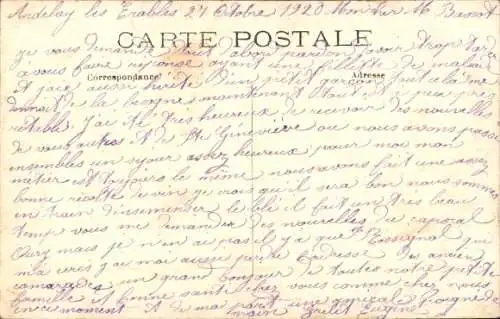 Ardelay les Erables 27 Octobre 1920 Mon cher M
CARTE POSTALE
je vous demande tout abord pardon d'avoir trop tardé
à vous faire réponse ayant une fillette de malade
Correspondance
Adresse
et j'ai aussi un petit garçon tout cela me
donnait de la besogne maintenant tout est à peu près
rétabli J'ai été très heureux de recevoir des nouvelles
de vous autres et de Ste Geneviève ou nous avons passé
ensembles un séjour assez heureux pour moi mon
métier est toujours le même nous avons fait une assez
bonne récolte de vin je crois qu'il sera bon nous sommes
en train d'insemenser le blé il fait un tres beau
temps vous me demandez des nouvelles du caporal
Oury mais je n'en ai pas il y a que Rossignol qui
m'a écris j'ai moi aussi perdu l'adresse des anciens
camarades un grand bonjour de toutes notre petite
famille et bonne santé chez vous comme chez nous
en ce moment et de ma part une amicale poignée de
main Grelet Eugène